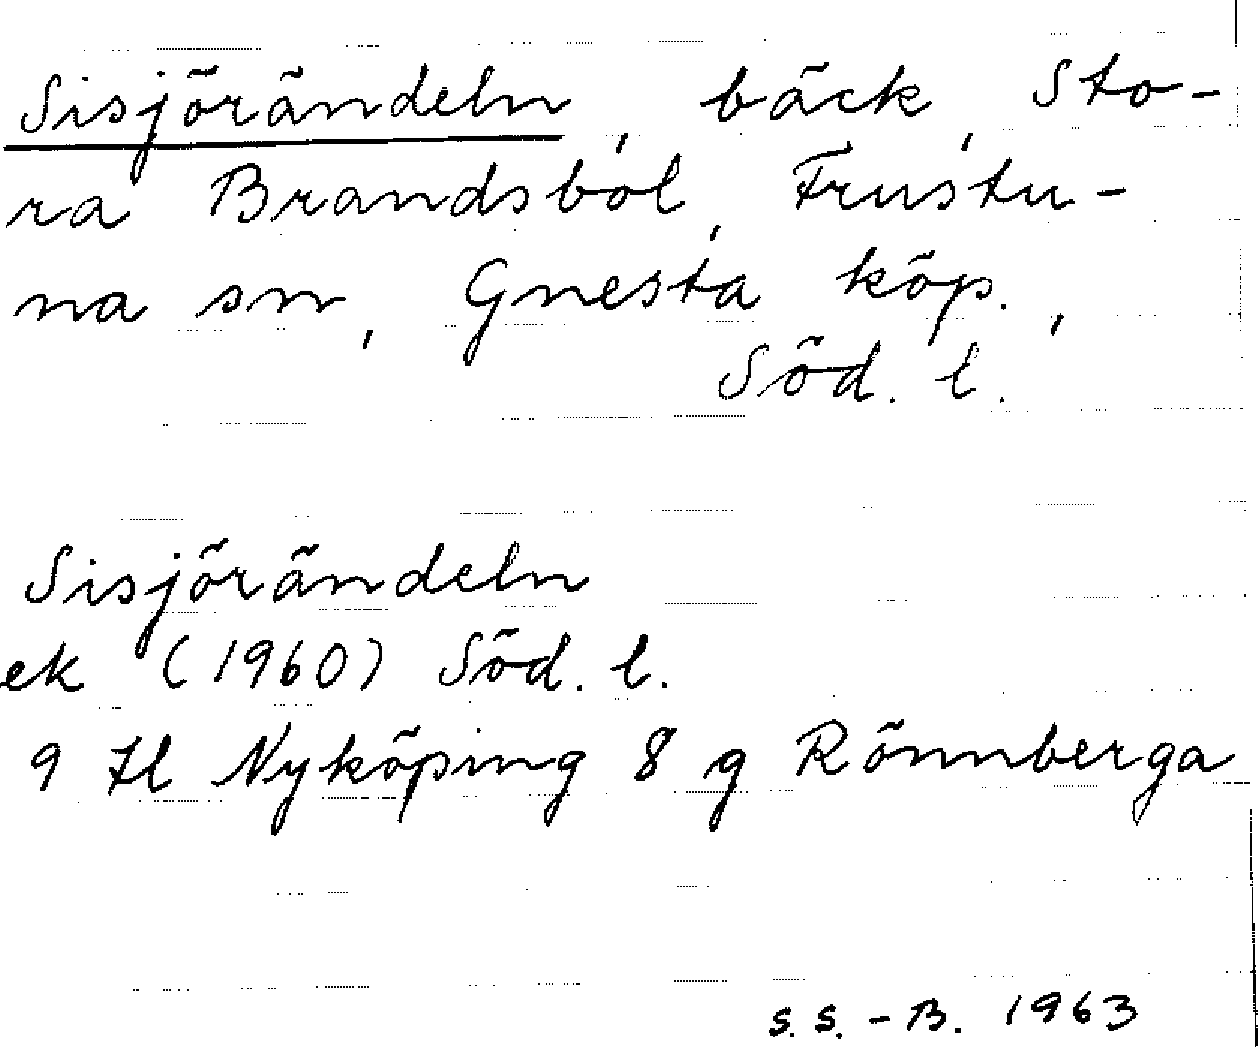 Sisjörändeln, bäck, Sto-
ra Brandsbol, Frustu-
na sn, Gnesta köp.,
Söd. l.
Sisjörändeln
ek (1960) Söd. l.
9 H Nyköping 8 g Rönnberga
S.S.-B. 1963